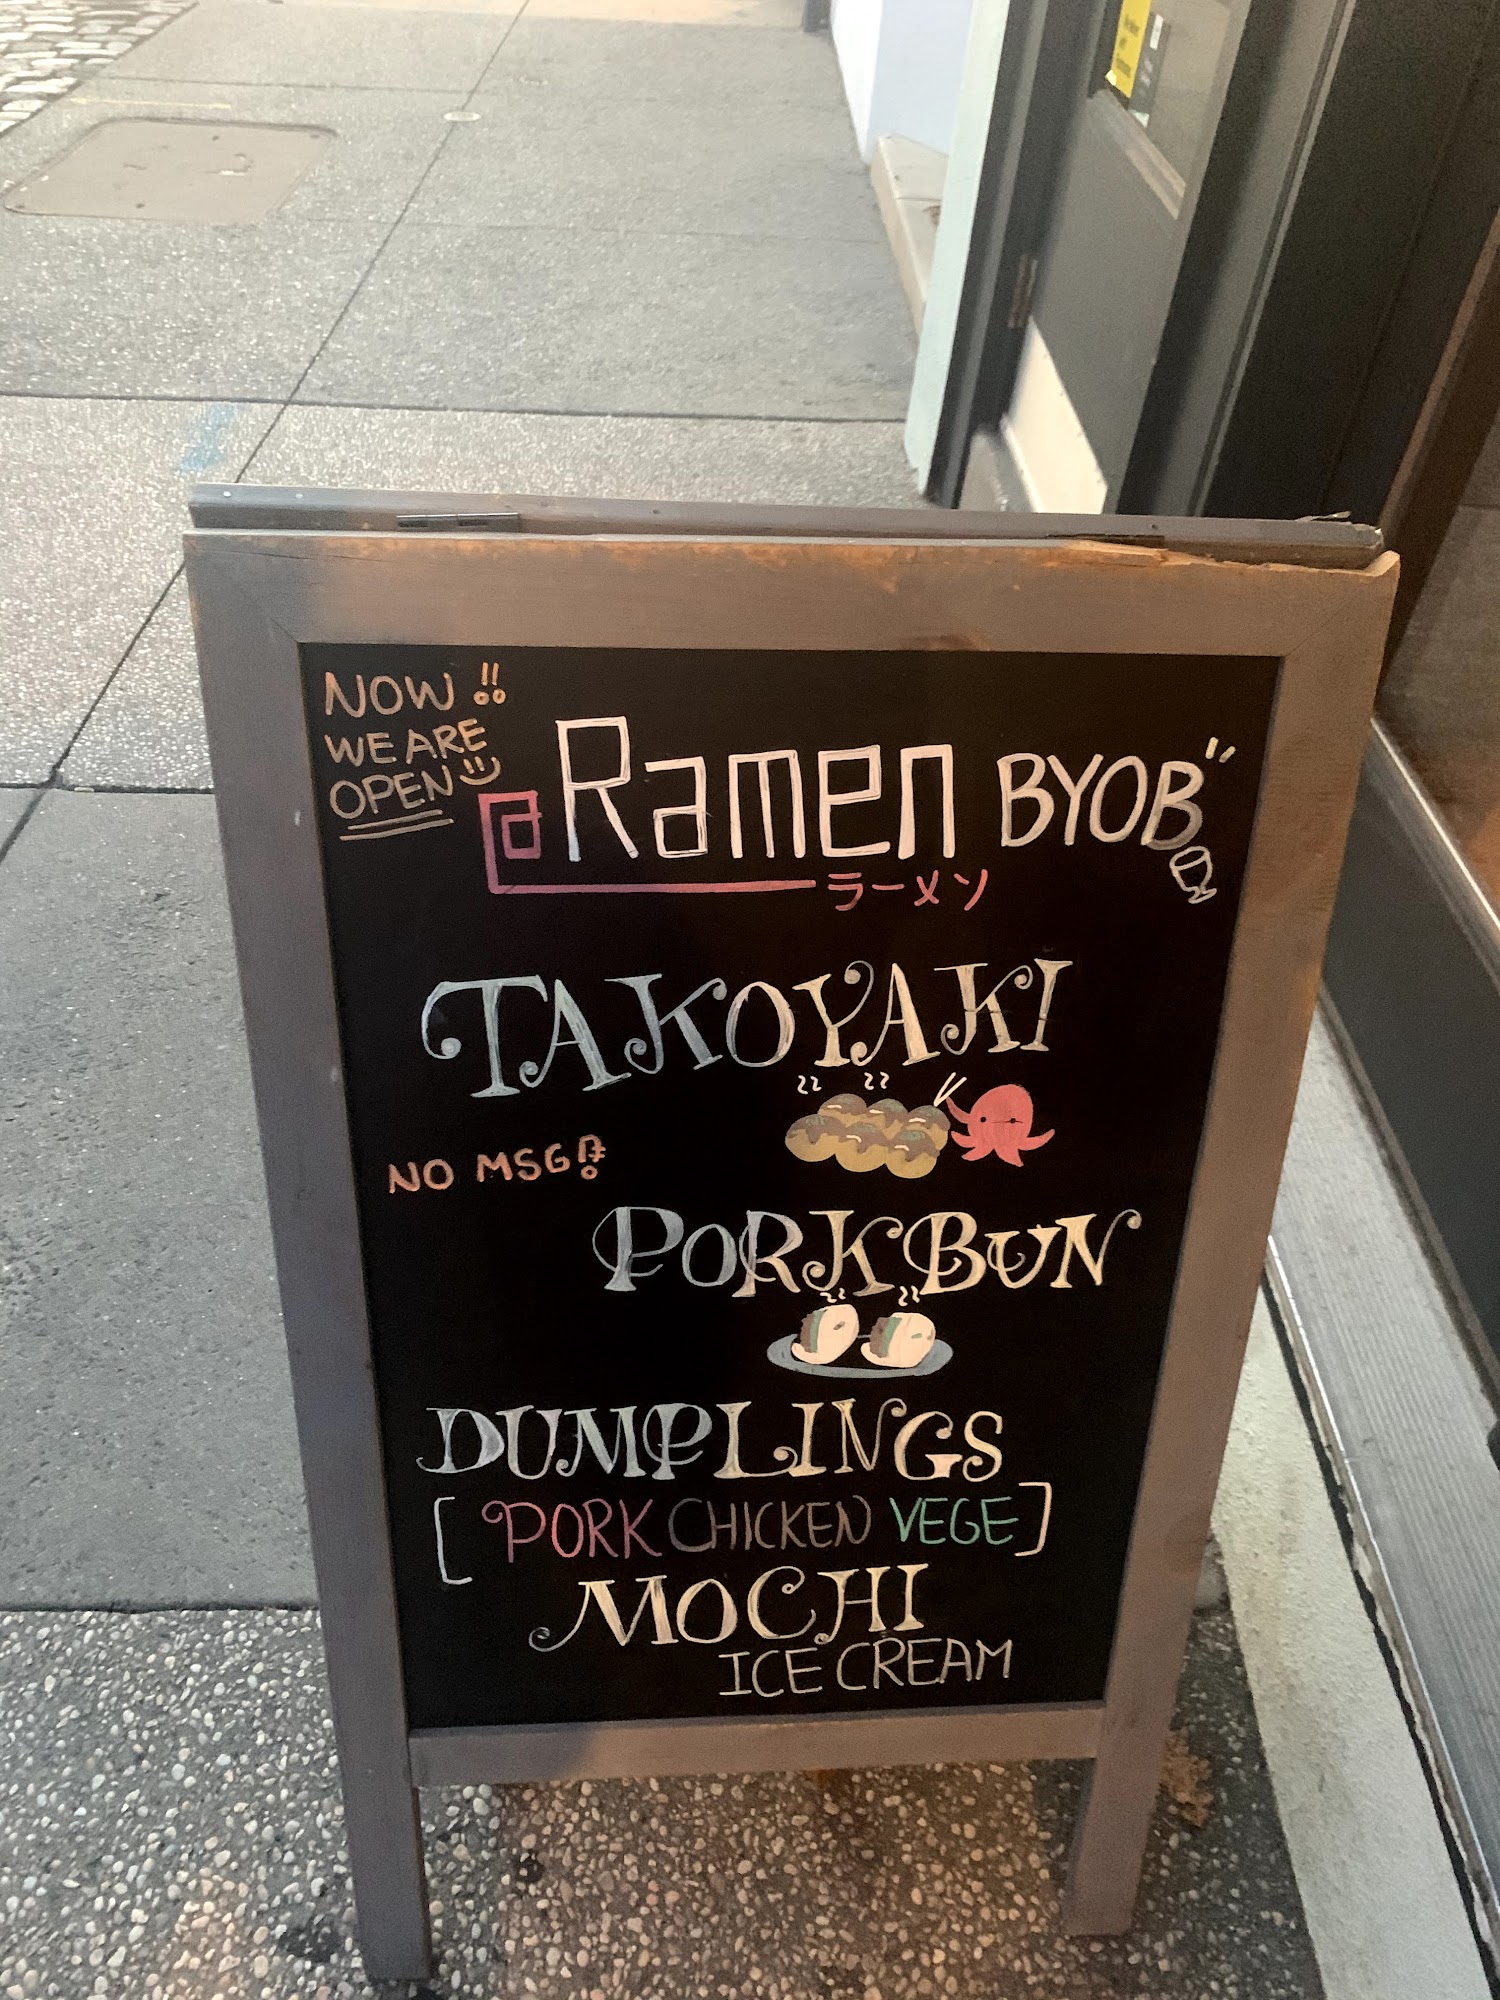 NOW !!
WE ARE
OPEN
@Ramen BYOB
ラーメン
TAKOYAKI
NO MSG!
PORK BUN
DUMPLINGS
[PORK CHICKEN VEGE]
MOCHI
ICE CREAM